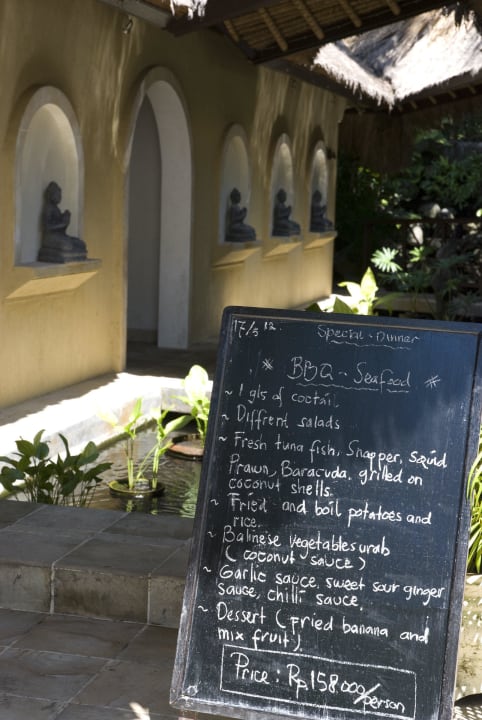 17/5 12.
Special - Dinner
* BBQ - Seafood *
~ 1 gls of coctail
~ Diffrent salads
~ Fresh tuna fish, Snapper, Squid
Prawn, Baracuda, grilled on
coconut shells.
~ Fried and boil potatoes and
rice.
~ Balinese vegetables urab
(coconut sauce)
~ Garlic sauce, sweet sour ginger
sauce, chilli sauce,
~ Dessert (fried banana and
mix fruit)
Price: Rp 158.000/person